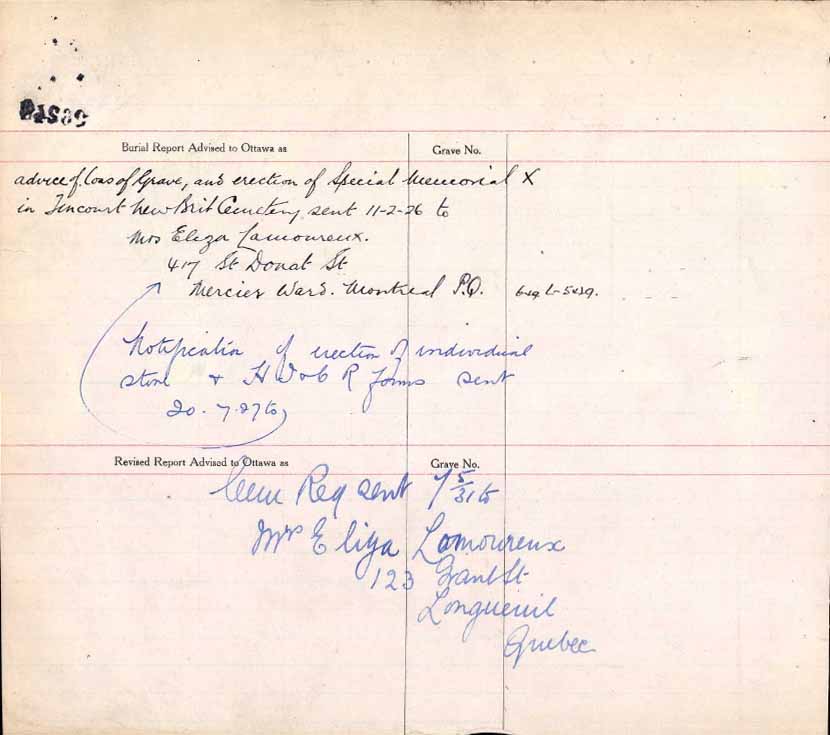 Burial Report Advised to Ottawa as
Grave No.
advice of loss of Grave, and erection of Special Memorial X
in Tincourt New Brit Cemetery, sent 11-2-26 to
Mrs Eliza Lamoureux.
417 St Donat St
Mercier Ward. Montreal P.Q.
Notification of erection of individual
stone & H W & C R forms sent
20.7.27 to
Revised Report Advised to Ottawa as
Grave No.
Cem Reg sent 7/5/31 to
Mrs Eliza Lamoureux
123 Grant St
Longueuil
Quebec